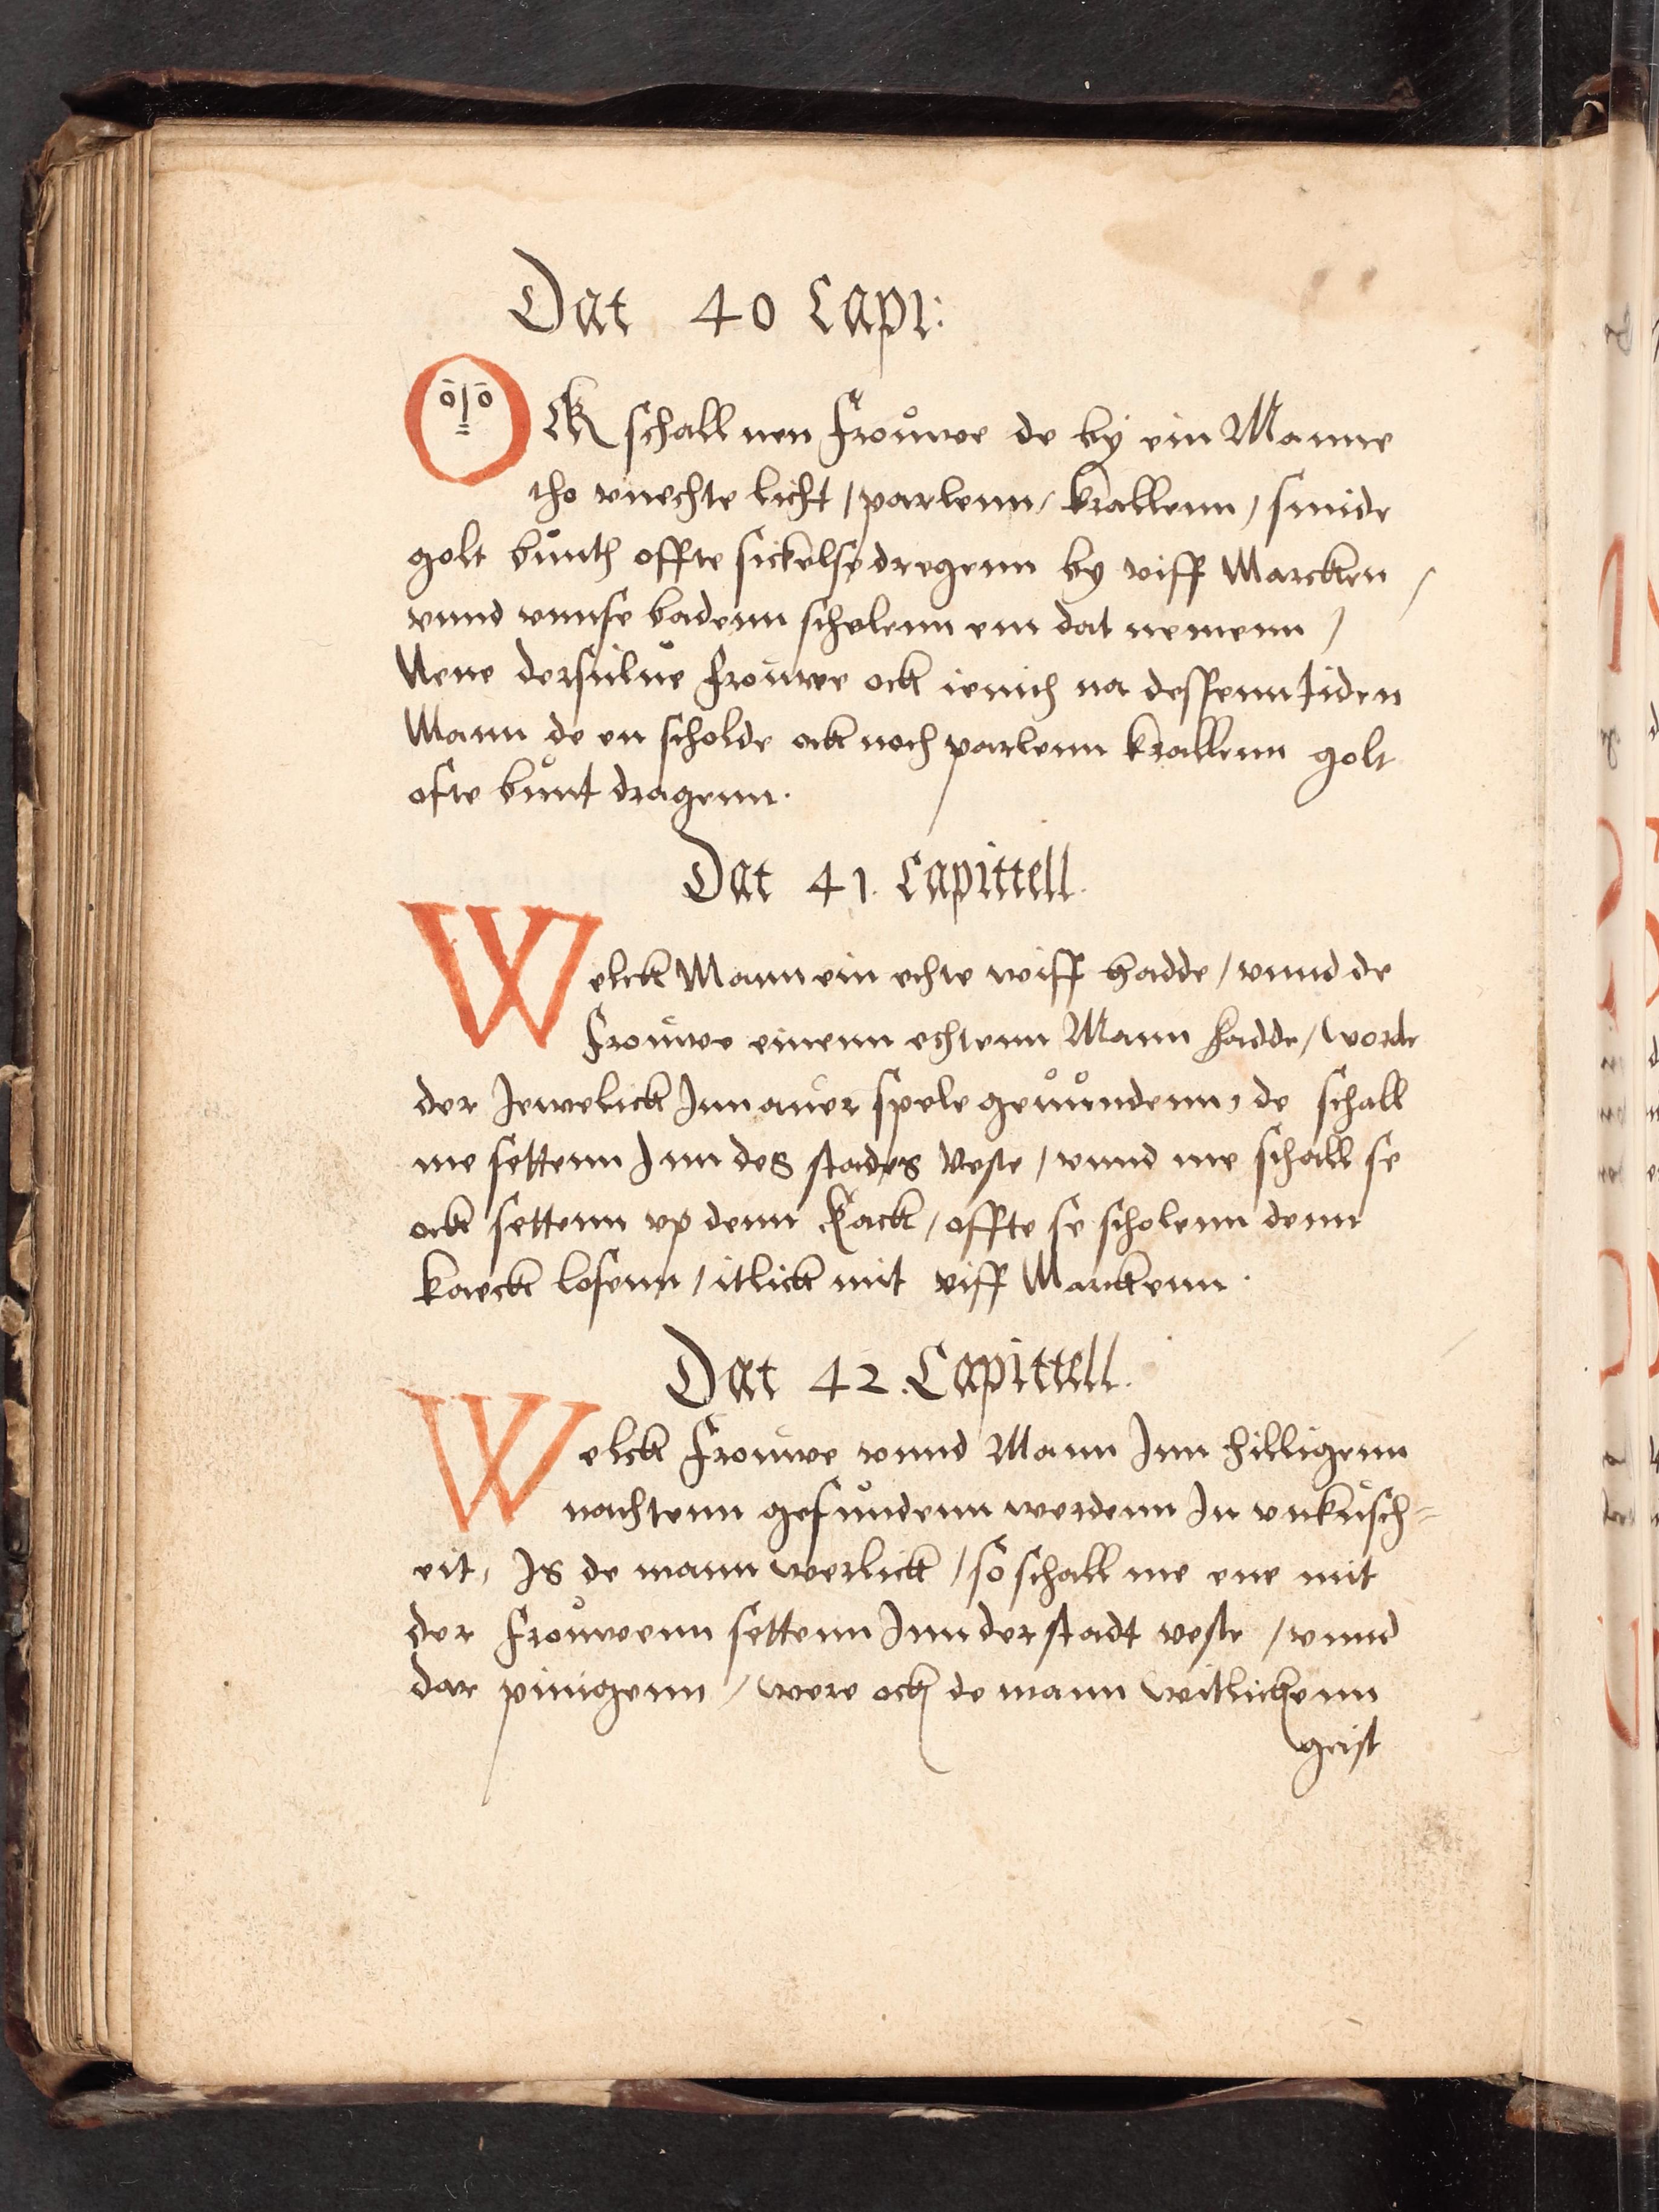 Dat 40 Capi:
OCK schall nen Frouwe de by ein Manne
tho vnechte licht / parlenn / krallenn / smide
golt bunth offte sickelse dregenn by viff Marcken /
vnnd vnnse badenn scholenn em dat nemenn /
Neme dersulue Frouwe ock ienich na dessenn tiden
Mann de en scholde ock noch parlenn krallenn golt
ofte bunt dragenn.
Dat 41. Capittell.
Welck Mann ein echte wiff hadde / vnnd de
Frouwe einenn echtenn Mann hadde / worde
der Jewelick Jnn auer spele geuundenn, de schall
me settenn Jnn des stades veste / vnnd me schall se
ock settenn vp denn Kack / offte se scholenn denn
kaeck losenn / itlick mit viff Marckenn.
Dat 42. Capittell.
Welck Frouwe vnnd Mann Jnn hilligenn
nachtenn gefundenn werdenn Jn vnkusch=
eit, Js de mann werlick / so schall me ene mit
der Frouwenn settenn Jnn der stadt veste / vnnd
dar pinigenn / were ock de mann witlickenn
geist